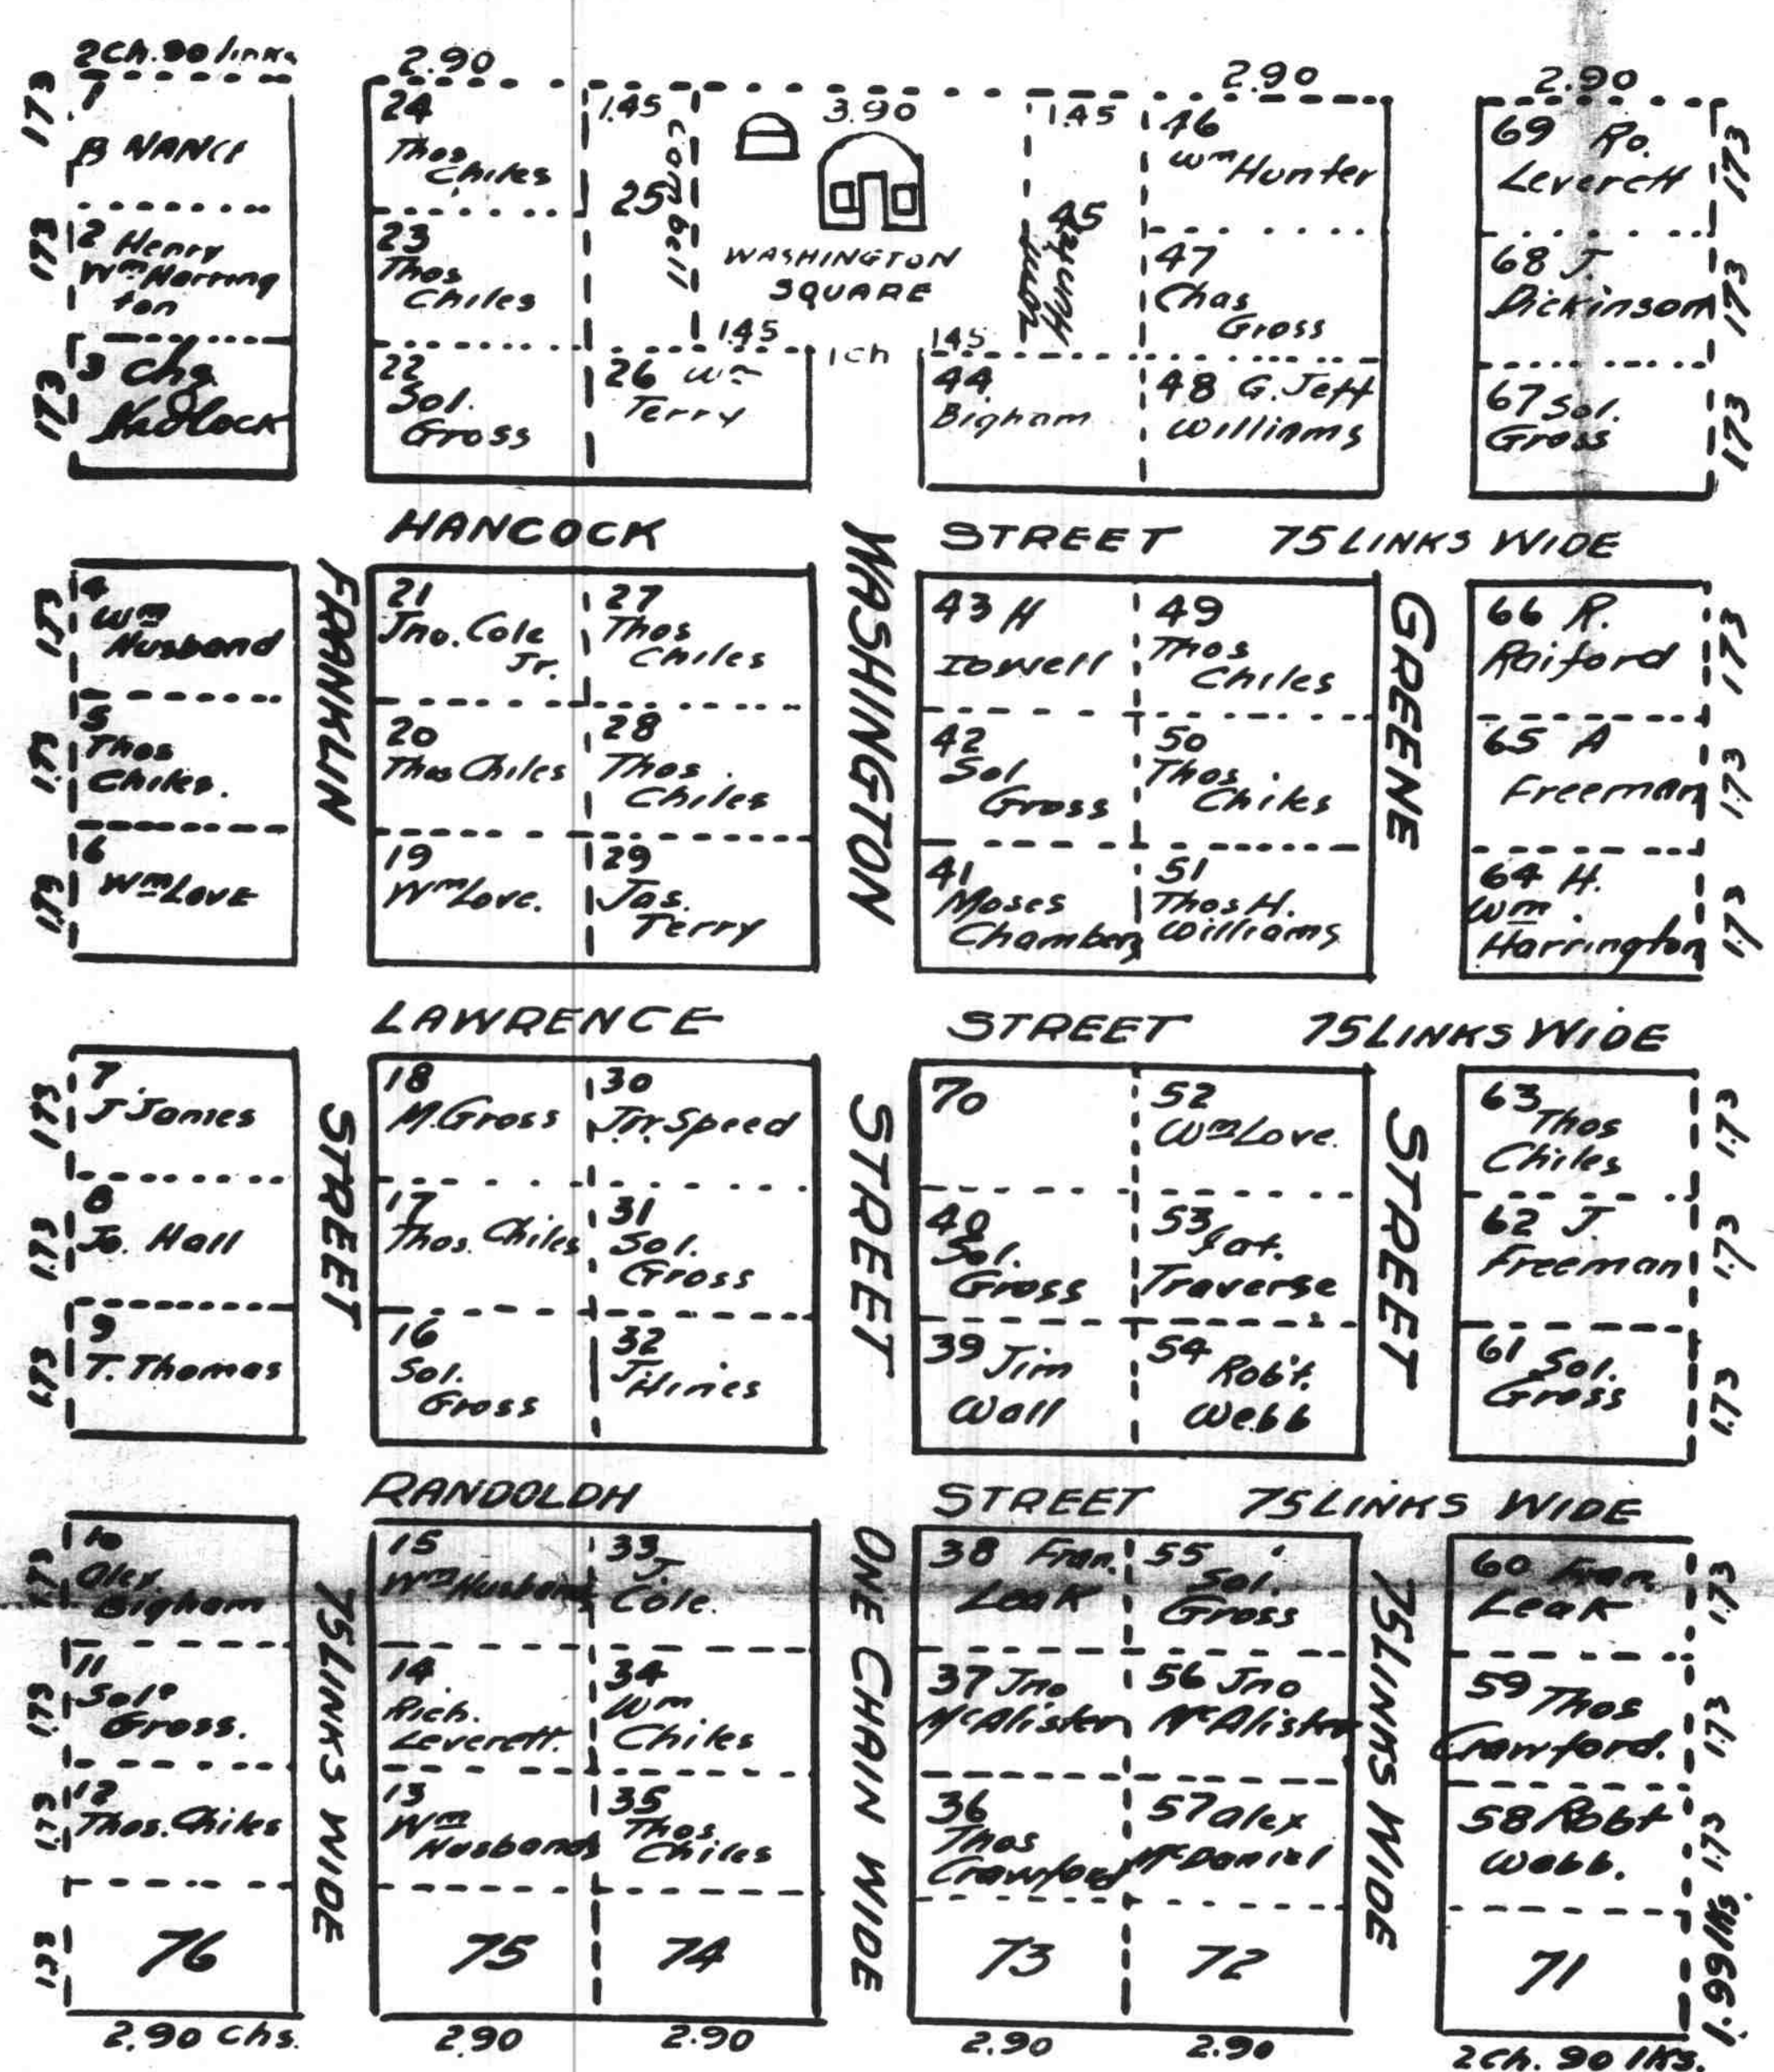 2 Ch. 90 links
2.90
3.90
2.90
2.90
173
173
173
1
B NANCE
2 Henry
Wm Harring
ton
3 Chs
24
Thos
Chiles
23
Thos
Chiles
22
Sol.
Gross
1.45
25
Combell
1.45
26 Wm
Terry
WASHINGTON
SQUARE
1 Ch
1.45
45
Hunter
1.45
44
Bigham
46
Wm Hunter
47
Chas
Gross
48 G. Jeff
Williams
69 Ro.
Leverett
68 J.
Dickinson
67 Sol.
Gross
173
173
173
HANCOCK STREET 75 LINKS WIDE
1.73
1.73
1.73
4
Wm
Husband
5
Thos
Chiles.
6
Wm LOVE
FRANKLIN
21
Jno. Cole
Jr.
20
Thos Chiles
19
Wm Love.
27
Thos
Chiles
28
Thos.
Chiles
29
Jas.
Terry
WASHINGTON
43 H
42
Sol
Gross
41
Moses
Chambers
49
Thos
Chiles
50
Thos.
Chiles
51
Thos H.
Williams
GREENE
66 R.
Raiford
65 A
Freeman
64 H.
Wm.
Harrington
1.73
1.73
1.73
LAWRENCE STREET 75 LINKS WIDE
1.73
1.73
1.73
7
J James
8
Jo. Hall
9
T. Thomas
STREET
18
M. Gross
17
Thos. Chiles
16
Sol.
Gross
30
Speed
31
Sol.
Gross
32
J Hines
STREET
70
40
Sol.
Gross
39 Jim
Wall
52
Wm Love.
53
Traverse
54 Rob't.
Webb
STREET
63 Thos
Chiles
62 J.
Freeman
61 Sol.
Gross
1.73
1.73
1.73
RANDOLDH STREET 75 LINKS WIDE
1.73
1.73
1.73
1.33
10
Alex.
Bigham
11
Solo
Gross.
12
Thos. Chiles
76
2.90 Chs.
75 LINKS WIDE
15
Wm Husbands
14
Rich.
Leverett.
13
Wm
Husbands
75
2.90
33
J.
Cole.
34
Wm.
Chiles
35
Thos.
Chiles
74
2.90
ONE CHAIN WIDE
38 Fran.
Leak
37 Jno
McAlister
36
Thos
Crawford
73
2.90
55
Sol.
Gross
56 Jno
McAlister
57 Alex
McDaniel
72
2.90
75 LINKS WIDE
60 Fran.
Leak
59 Thos
Crawford.
58 Robt
Webb.
71
2 Ch. 90 lks.
1.73
1.73
1.73
1.99 lks.